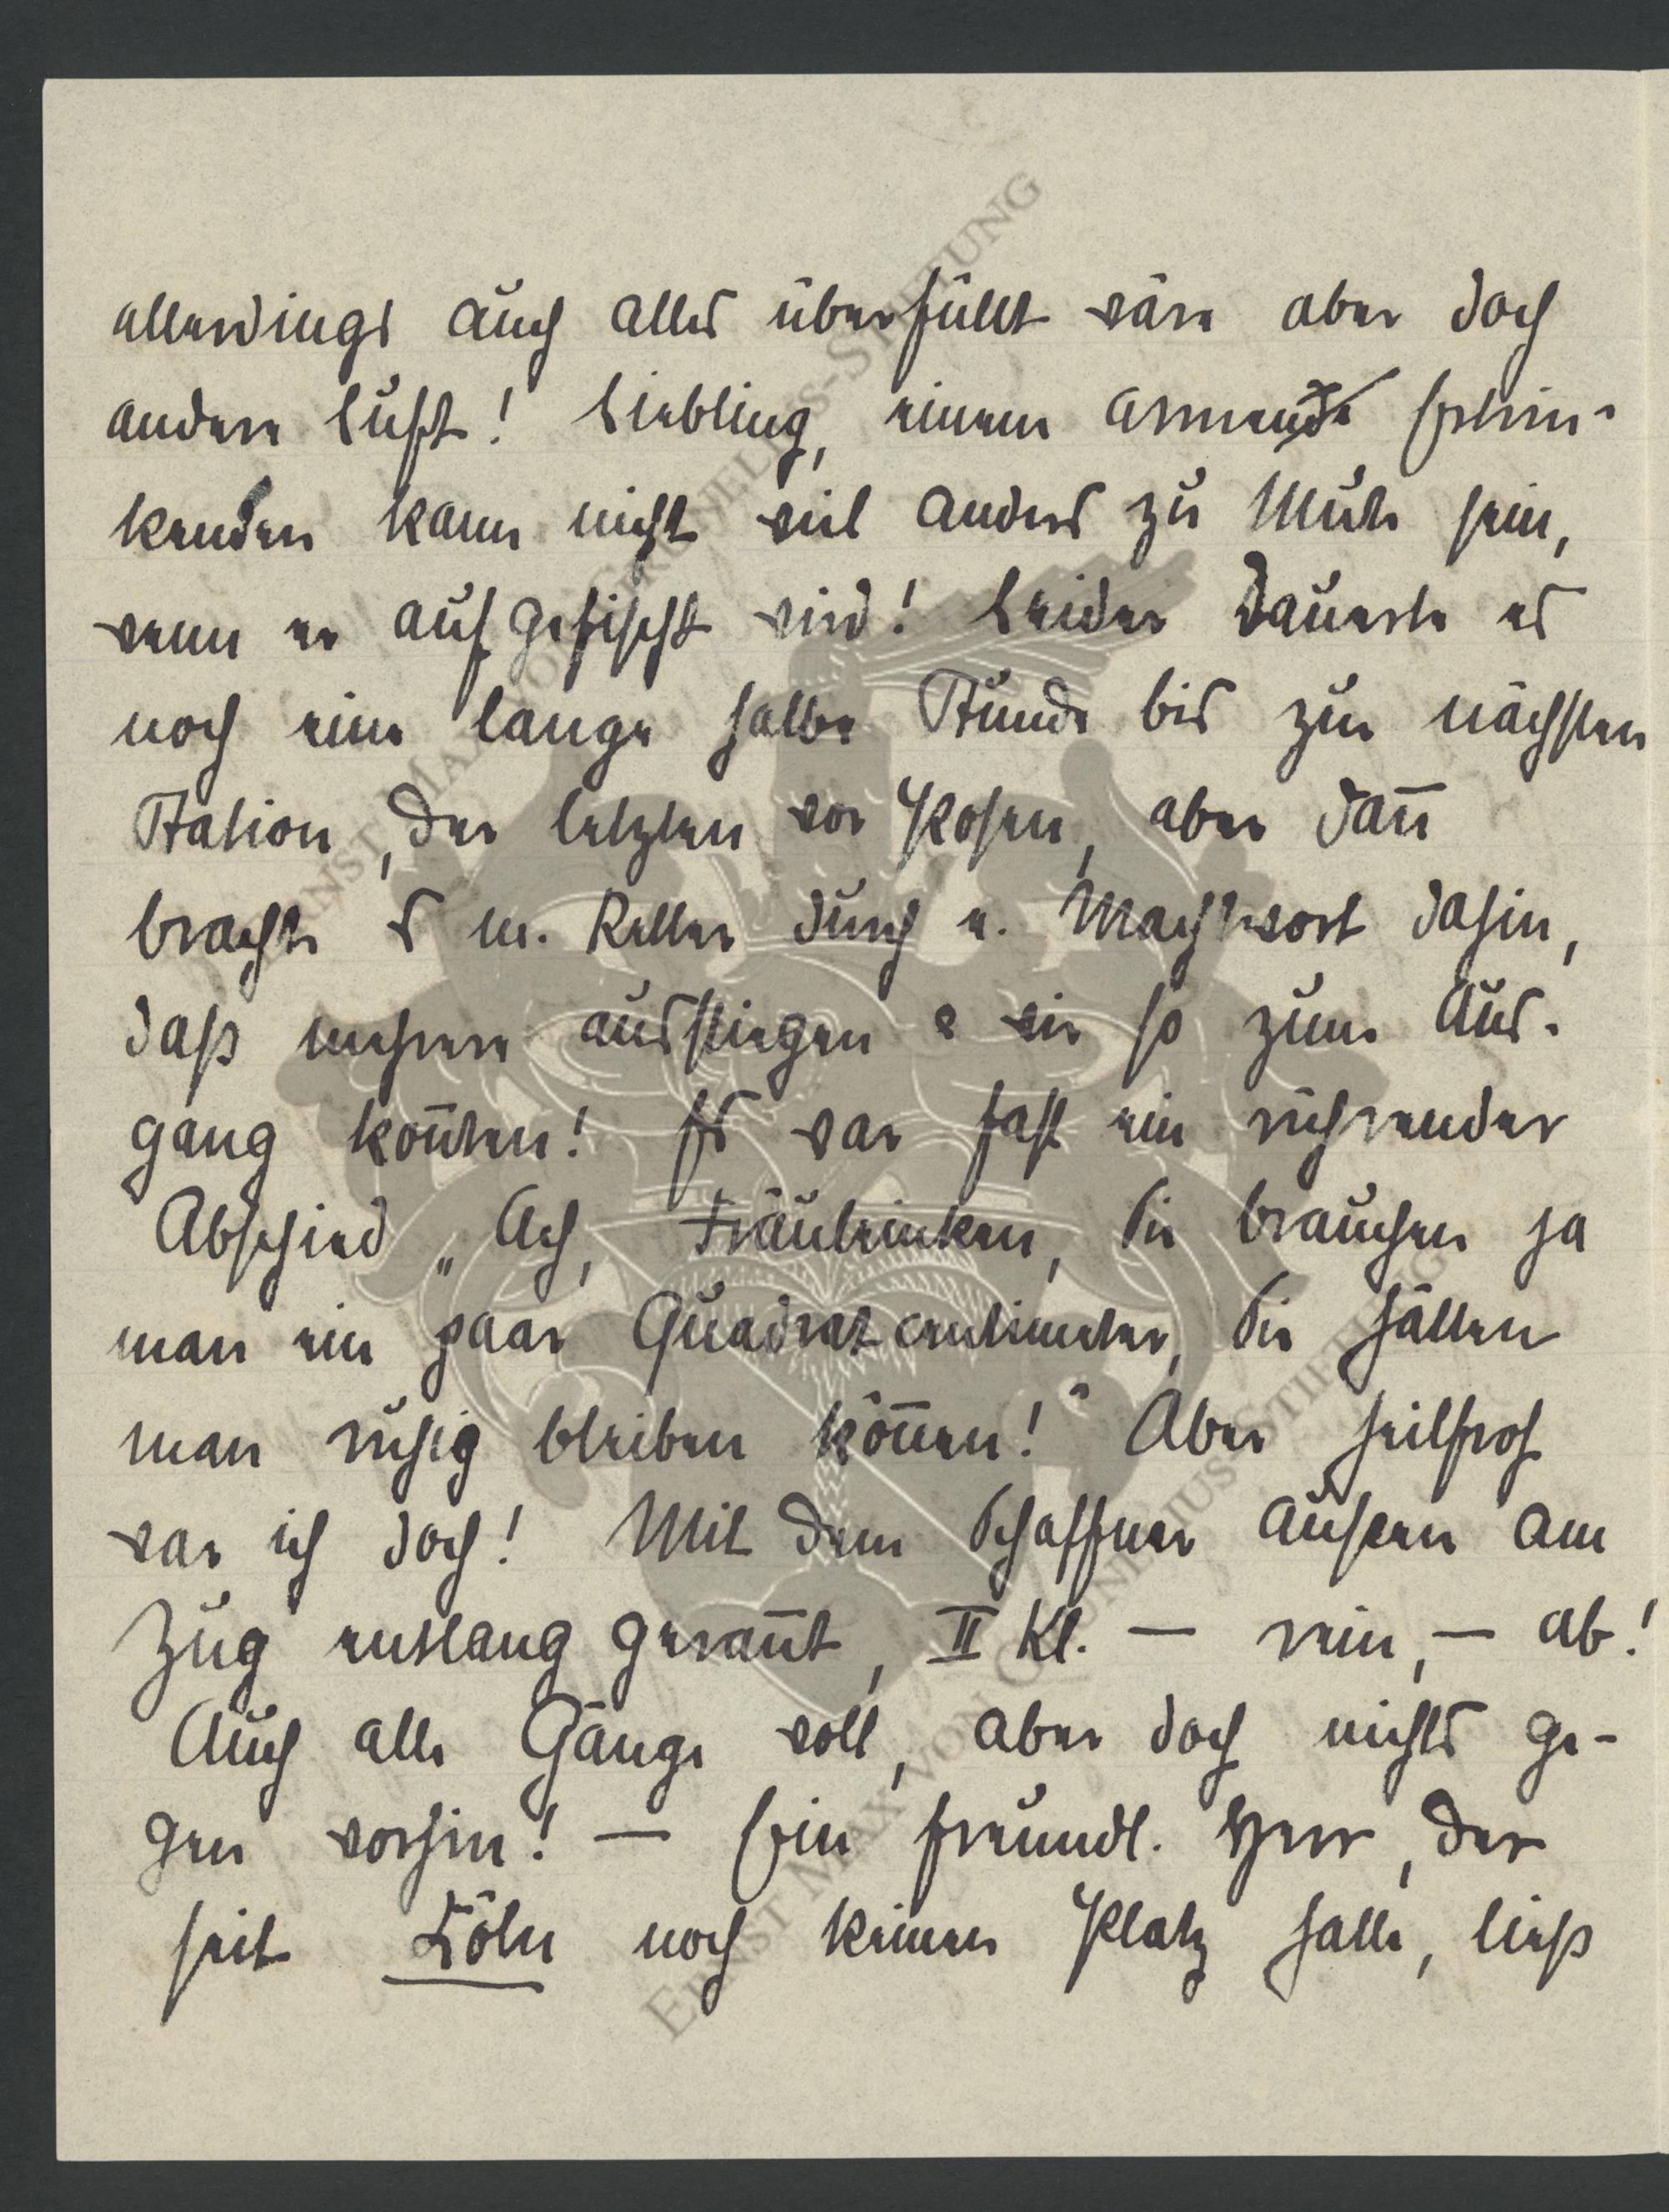 allerdings auch alles überfüllt wäre aber doch
andere Luft! Liebling, einem armen Ertrin-
kenden kann nicht viel anders zu Mute sein,
wenn er aufgefischt wird! Leider dauerte es
noch eine lange halbe Stunde bis zur nächsten
Station, der letzten vor Posen, aber dan̅
brachte es m. Retter durch e. Machtwort dahin,
daß mehrere ausstiegen & wir so zum Aus-
gang kon̅ten! Es war fast ein rührender
Abschied „Ach, Fräuleinken, Sie brauchen ja
man ein paar Quadratcentimeter, Sie hätten
man ruhig bleiben kön̅en!" Aber heilfroh
war ich doch! Mit dem Schaffner außen am
Zug entlang geran̅t, II Kl. — rein, — ab!
Auch alle Gänge voll, aber doch nichts ge-
gen vorhin! — Ein freundl. Herr, der
seit Köln noch keinen Platz hatte, ließ
ERNST MAX VON GRUNELIUS-STIFTUNG
ERNST MAX VON GRUNELIUS-STIFTUNG